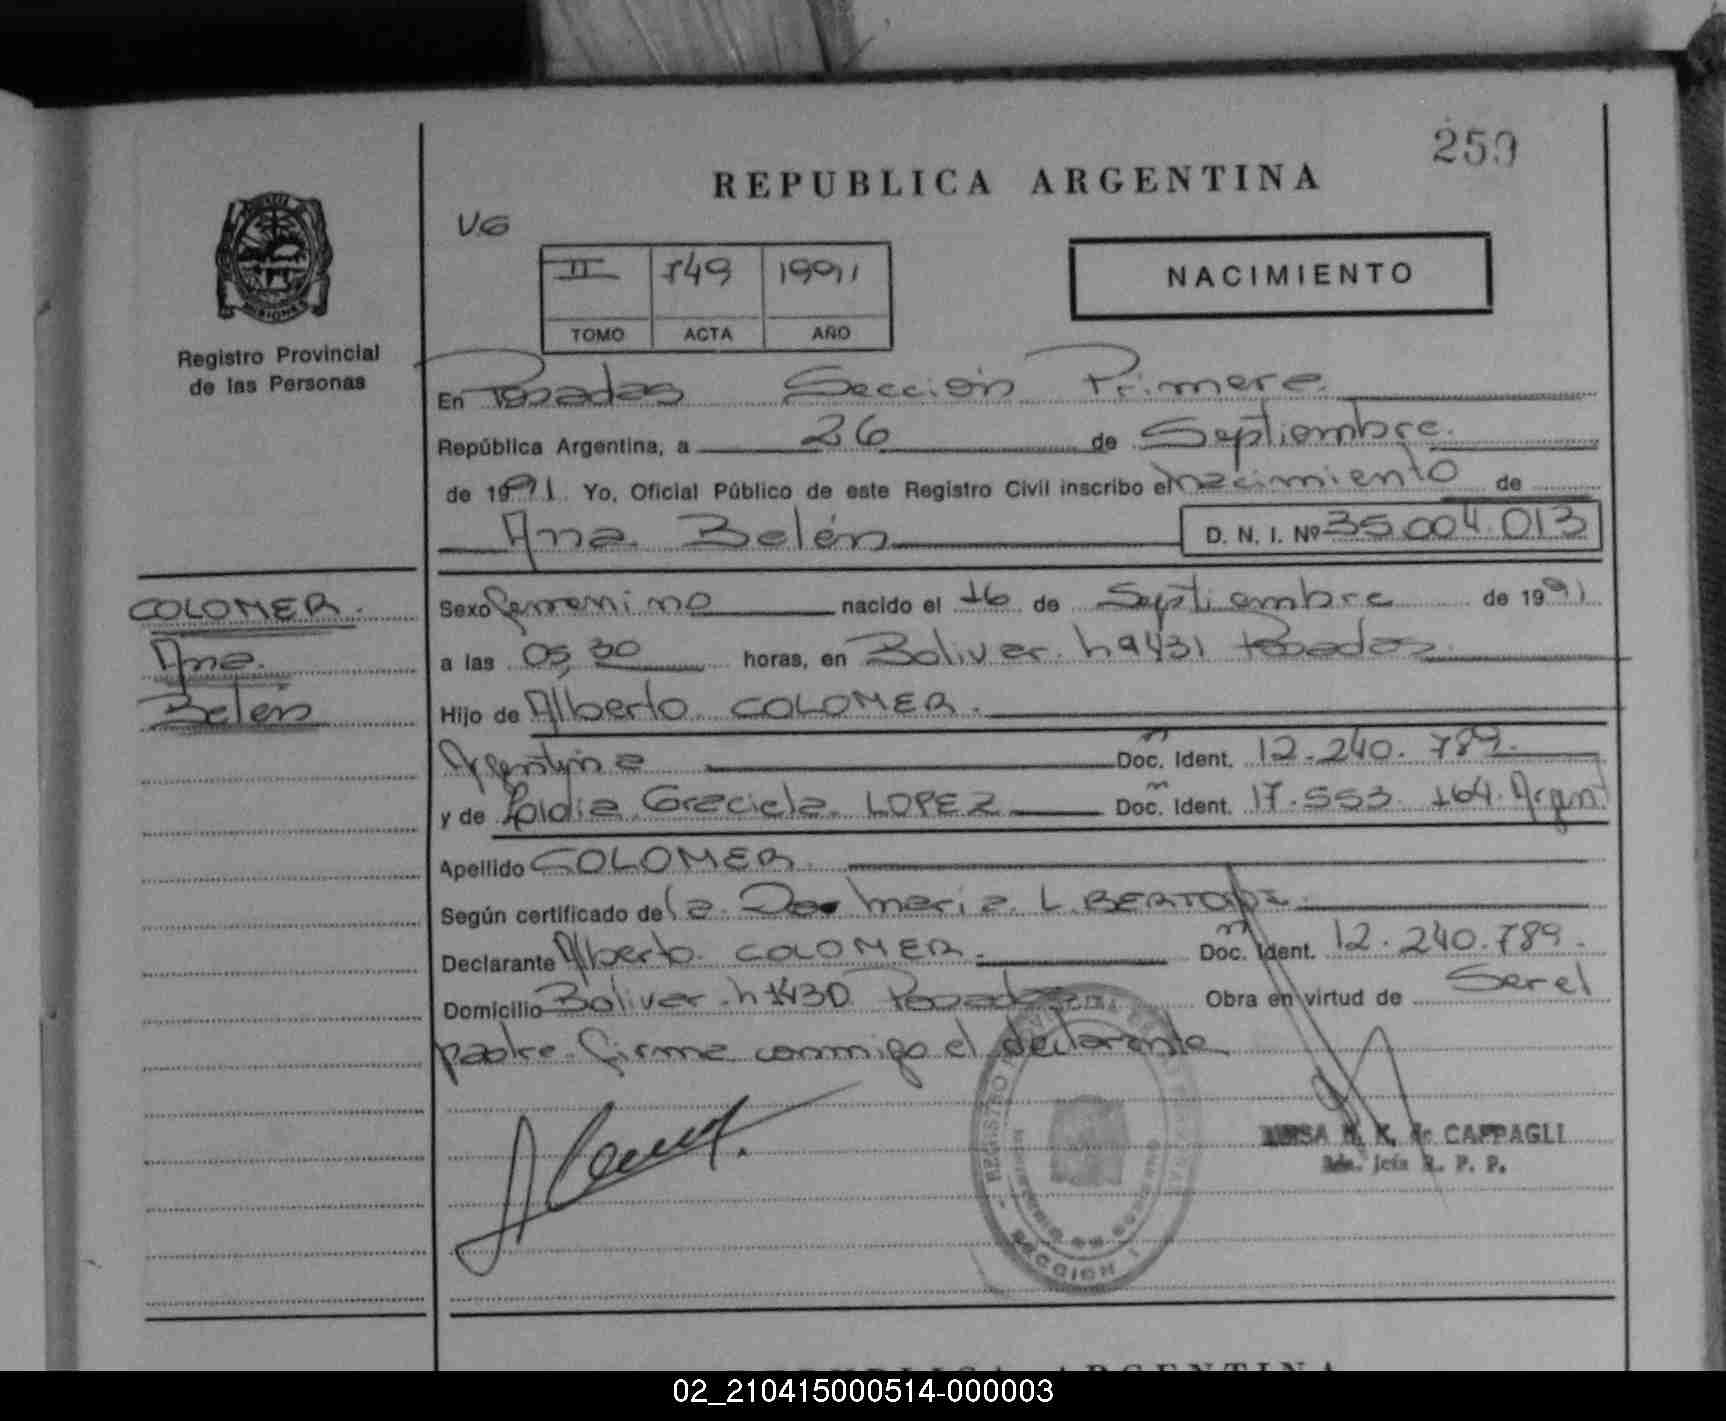 259
REPUBLICA ARGENTINA
V.G
NACIMIENTO
II 749 1991
TOMO ACTA AÑO
MISIONES
Registro Provincial
de las Personas
En Posadas Sección Primera.
República Argentina, a 26 de Septiembre.
de 1991 Yo, Oficial Público de este Registro Civil inscribo el nacimiento de
Ana Belén D. N. I. Nº 35.004.013
COLOMER.
Ana.
Belén
Sexo femenino nacido el 16 de Septiembre de 1991
a las 05,30 horas, en Bolivar. nº 431 Posadas.
Hijo de Alberto COLOMER.
Argentina Doc. Ident. 12.240.789.
y de Lidia Graciela LOPEZ Doc. Ident. 17.553.164. Argent.
Apellido COLOMER.
Según certificado de la Dra Maria L. BERTONI.
Declarante Alberto COLOMER. Doc. Ident. 12.240.789.
Domicilio Bolivar nº 1430 Posadas Obra en virtud de Ser el
padre. firma conmigo el declarante
REGISTRO PROVINCIAL DE LAS PERSONAS
SECCION I
CAPPAGLI
Jefa R. P. P.
REPUBLICA ARGENTINA
02_210415000514-000003